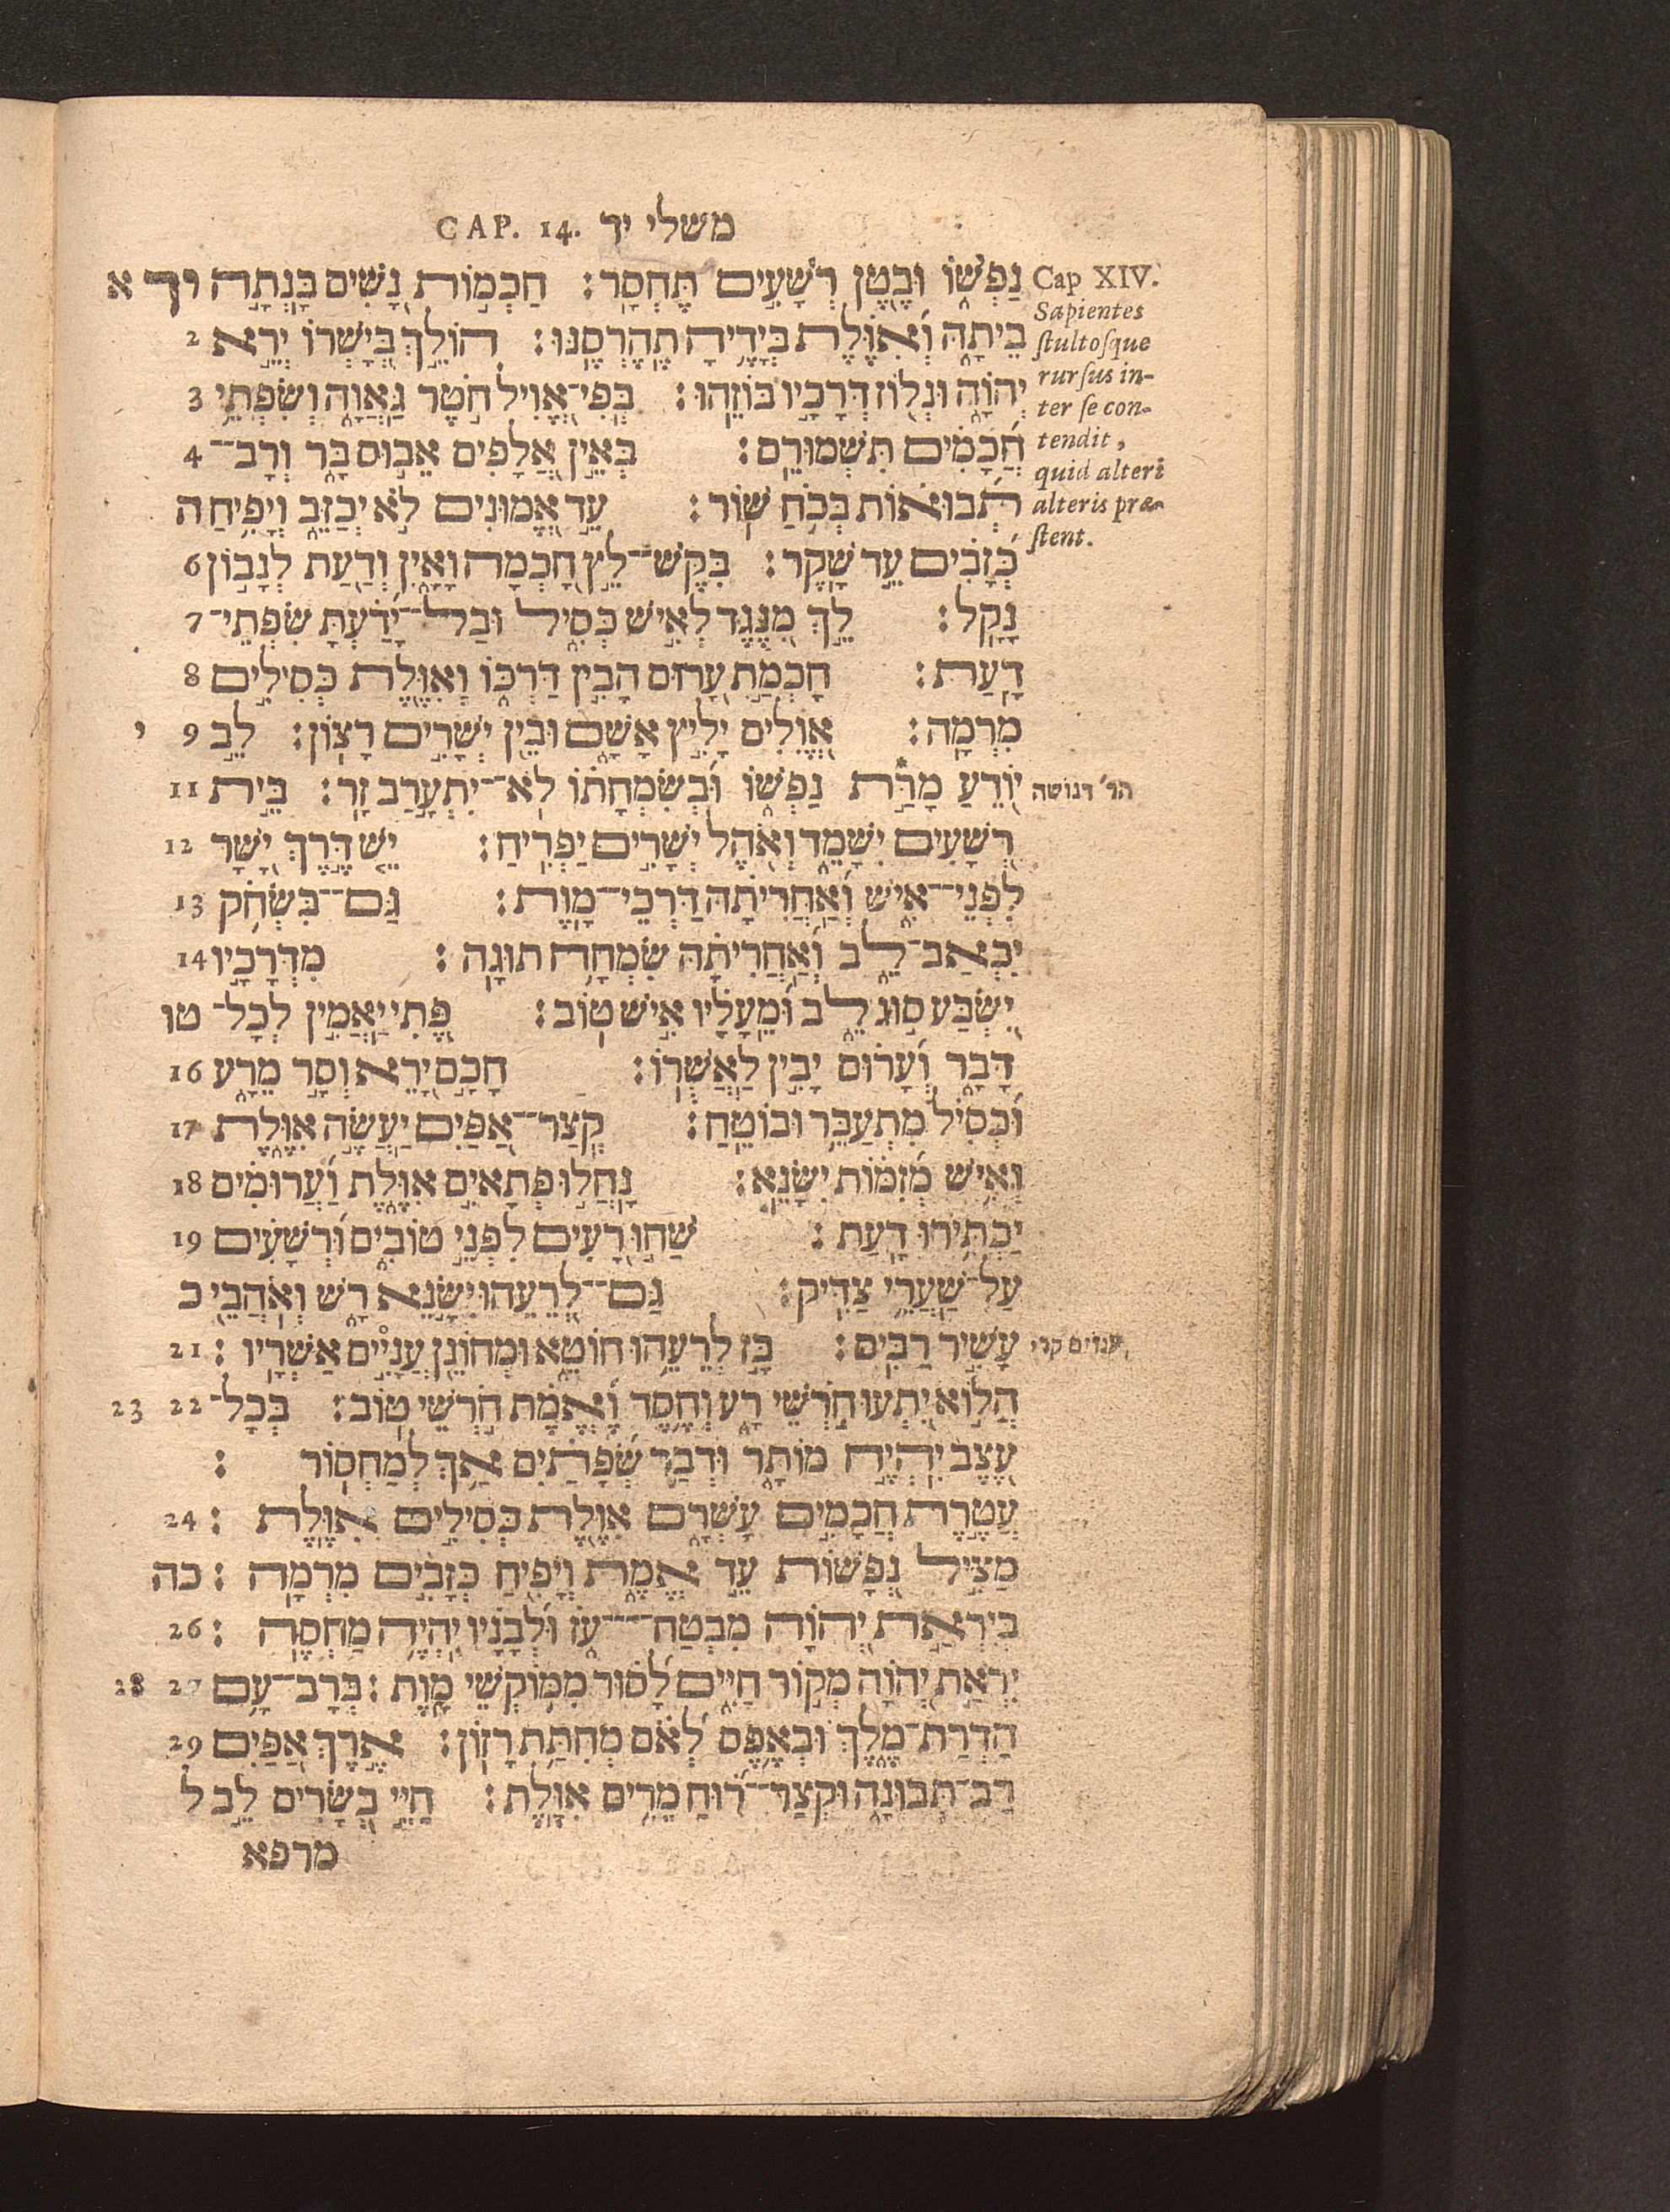 משלי יד CAP. 14.
נַפְשׁוֹ וּבֶטֶן רְשָׁעִים תֶּחְסָר׃ חַכְמוֹת נָשִׁים בָּנְתָה יד א
בֵיתָהּ וְאִוֶּלֶת בְּיָדֶיהָ תֶהֶרְסֶנּוּ׃ הוֹלֵךְ בְּיָשְׁרוֹ יְרֵא 2
יְהֹוָה וּנְלוֹז דְּרָכָיו בּוֹזֵהוּ׃ בְּפִי־אֱוִיל חֹטֶר גַּאֲוָה וְשִׂפְתֵי 3
חֲכָמִים תִּשְׁמוּרֵם׃ בְּאֵין אֲלָפִים אֵבוּס בָּר וְרָב־ 4
תְּבוּאוֹת בְּכֹחַ שׁוֹר׃ עֵד אֱמוּנִים לֹא יְכַזֵּב וְיָפִיחַ ה
כְּזָבִים עֵד שָׁקֶר׃ בִּקֶּשׁ־לֵץ חָכְמָה וָאָיִן וְדַעַת לְנָבוֹן 6
נָקָל׃ לֵךְ מִנֶּגֶד לְאִישׁ כְּסִיל וּבַל־יָדַעְתָּ שִׂפְתֵי־ 7
דָעַת׃ חָכְמַת עָרוּם הָבִין דַּרְכּוֹ וְאִוֶּלֶת כְּסִילִים 8
מִרְמָה׃ אֱוִלִים יָלִיץ אָשָׁם וּבֵין יְשָׁרִים רָצוֹן׃ לֵב 9 י
יוֹדֵעַ מָרַּת נַפְשׁוֹ וּבְשִׂמְחָתוֹ לֹא־יִתְעָרַב זָר׃ בֵּית 11
רְשָׁעִים יִשָּׁמֵד וְאֹהֶל יְשָׁרִים יַפְרִיחַ׃ יֵשׁ דֶּרֶךְ יָשָׁר 12
לִפְנֵי־אִישׁ וְאַחֲרִיתָהּ דַּרְכֵי־מָוֶת׃ גַּם־בִּשְׂחֹק 13
יִכְאַב־לֵב וְאַחֲרִיתָהּ שִׂמְחָה תוּגָה׃ מִדְּרָכָיו 14
יִשְׂבַּע סוּג לֵב וּמֵעָלָיו אִישׁ טוֹב׃ פֶּתִי יַאֲמִין לְכָל־ טו
דָּבָר וְעָרוּם יָבִין לַאֲשֻׁרוֹ׃ חָכָם יָרֵא וְסָר מֵרָע 16
וּכְסִיל מִתְעַבֵּר וּבוֹטֵחַ׃ קְצַר־אַפַּיִם יַעֲשֶׂה אִוֶּלֶת 17
וְאִישׁ מְזִמּוֹת יִשָּׂנֵא׃ נָחֲלוּ פְתָאיִם אִוֶּלֶת וַעֲרוּמִים 18
יַכְתִּירוּ דָעַת׃ שַׁחוּ רָעִים לִפְנֵי טוֹבִים וּרְשָׁעִים 19
עַל־שַׁעֲרֵי צַדִּיק׃ גַּם־לְרֵעֵהוּ יִשָּׂנֵא רָשׁ וְאֹהֲבֵי כ
עָשִׁיר רַבִּים׃ בָּז לְרֵעֵהוּ חוֹטֵא וּמְחוֹנֵן עֲנָיִים אַשְׁרָיו׃ 21
הֲלוֹא יִתְעוּ חֹרְשֵׁי רָע וְחֶסֶד וֶאֱמֶת חֹרְשֵׁי טוֹב׃ בְּכָל־ 22 23
עֶצֶב יִהְיֶה מוֹתָר וּדְבַר שְׂפָתַיִם אַךְ לְמַחְסוֹר׃
עֲטֶרֶת חֲכָמִים עָשְׁרָם אִוֶּלֶת כְּסִילִים אִוֶּלֶת׃ 24
מַצִּיל נְפָשׁוֹת עֵד אֱמֶת וְיָפִיחַ כְּזָבִים מִרְמָה׃ כה
בְּיִרְאַת יְהֹוָה מִבְטַח־עֹז וּלְבָנָיו יִהְיֶה מַחְסֶה׃ 26
יִרְאַת יְהֹוָה מְקוֹר חַיִּים לָסוּר מִמּוֹקְשֵׁי מָוֶת׃ בְּרָב־עָם 27 28
הַדְרַת־מֶלֶךְ וּבְאֶפֶס לְאֹם מְחִתַּת רָזוֹן׃ אֶרֶךְ אַפַּיִם 29
רַב־תְּבוּנָה וּקְצַר־רוּחַ מֵרִים אִוֶּלֶת׃ חַיֵּי בְשָׂרִים לֵב ל
מרפא
Cap XIV.
Sapientes
ſtultoſque
rurſus in-
ter ſe con-
tendit,
quid alteri
alteris præ-
ſtent.
הר׳ דגושה
ענוים קרי